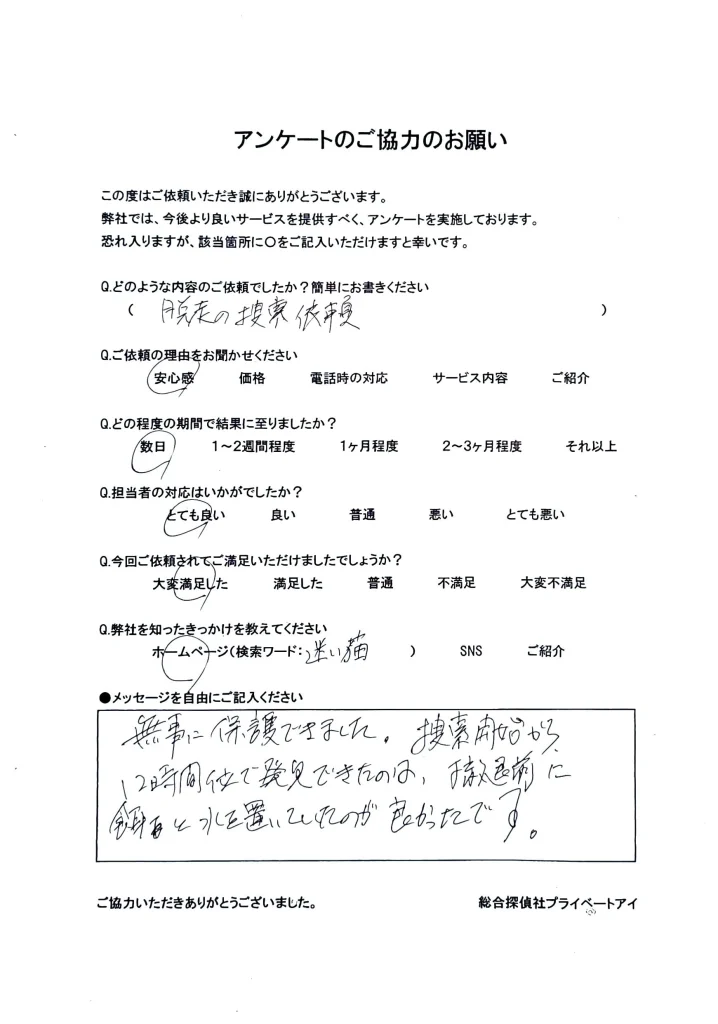 アンケートのご協力のお願い
この度はご依頼いただき誠にありがとうございます。
弊社では、今後より良いサービスを提供すべく、アンケートを実施しております。
恐れ入りますが、該当箇所に〇をご記入いただけますと幸いです。
Q.どのような内容のご依頼でしたか？簡単にお書きください
( 脱走の捜索依頼 )
Q.ご依頼の理由をお聞かせください
安心感 価格 電話時の対応 サービス内容 ご紹介
Q.どの程度の期間で結果に至りましたか？
数日 1～2週間程度 1ヶ月程度 2～3ヶ月程度 それ以上
Q.担当者の対応はいかがでしたか？
とても良い 良い 普通 悪い とても悪い
Q.今回ご依頼されてご満足いただけましたでしょうか？
大変満足した 満足した 普通 不満足 大変不満足
Q.弊社を知ったきっかけを教えてください
ホームページ(検索ワード：迷い猫 ) SNS ご紹介
●メッセージを自由にご記入ください
無事に保護できました。捜索開始から
12時間位で発見できたのは、撤退前に
餌と水を置いていたのが良かったです。
ご協力いただきありがとうございました。 総合探偵社プライベートアイ